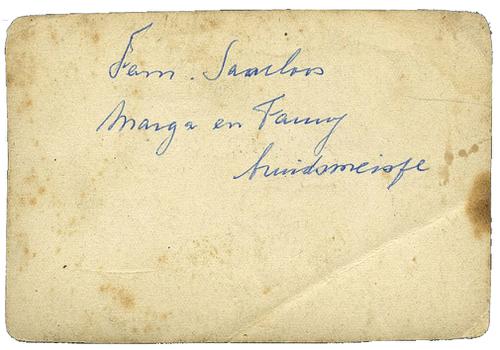 Fam. Saarloos
Marga en Fanny
huidsmeisje